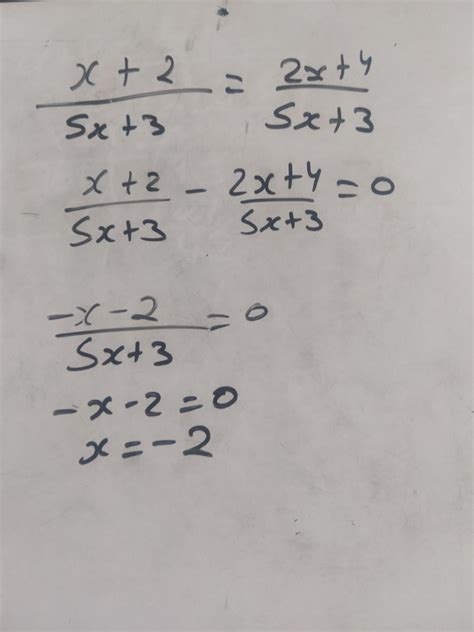 x + 2 / 5x + 3 = 2x + 4 / 5x + 3
x + 2 / 5x + 3 - 2x + 4 / 5x + 3 = 0
-x - 2 / 5x + 3 = 0
-x - 2 = 0
x = -2